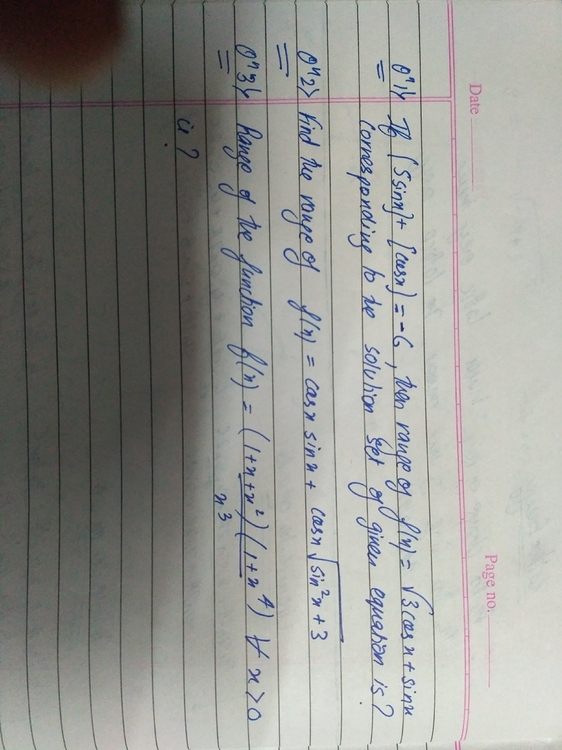 Date
Page no:
Qⁿ1⟩ If [5sinx] + [cosx] = -6, then range of f(x) = √3 cosx + sinx
corresponding to the solution set of given equation is?
Qⁿ2⟩ Find the range of f(x) = cosx sinx + cosx √(sin²x + 3)
Qⁿ3⟩ Range of the function f(x) = (1+x+x²)(1+x⁴)/x³ ∀ x>0
is?